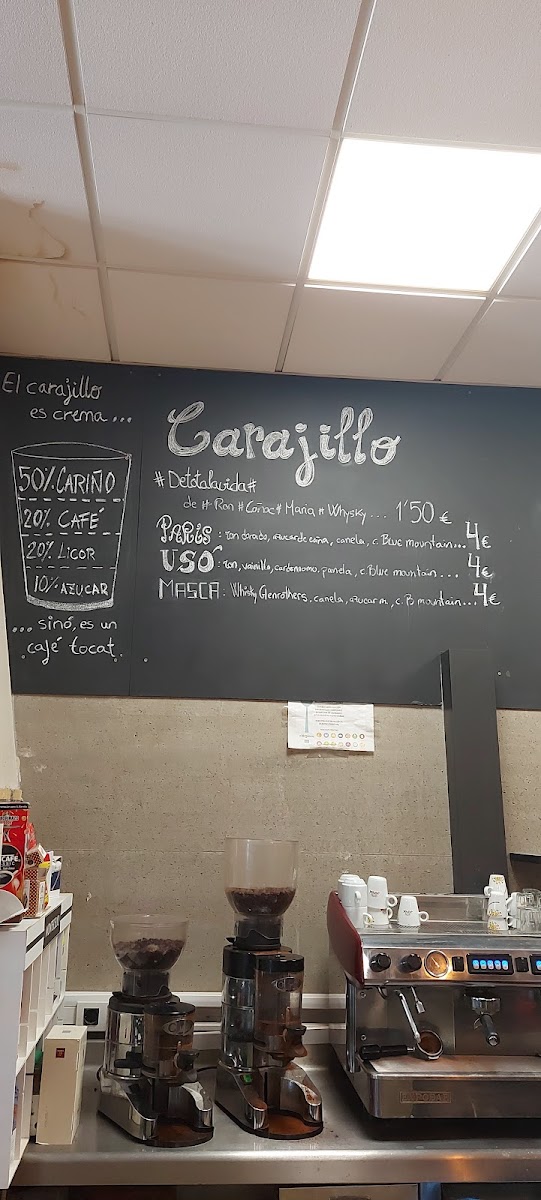 El carajillo
es crema...
50% CARIÑO
20% CAFÉ
20% LICOR
10% AZUCAR
... sinó, es un
café tocat
Carajillo
#Detotalavida#
de # Ron # Coñac # Maria # Whysky... 1'50 €
PARÍS: ron dorado, azucar de caña, canela, c. Blue mountain... 4€
USÓ: ron, vainilla, cardamomo, panela, c. Blue mountain... 4€
MASCA: Whisky Glenrothers, canela, azucar m., c. B mountain... 4€